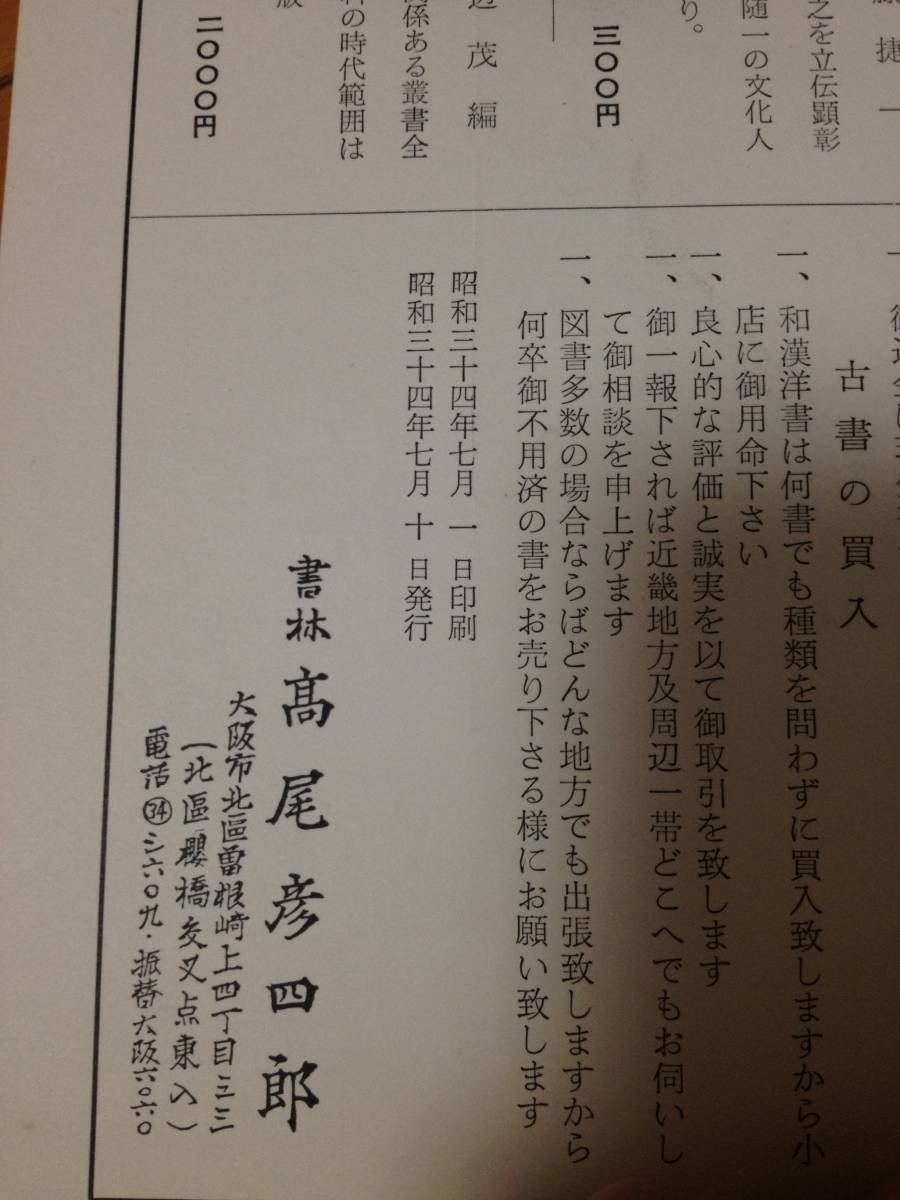 捷一
之を立伝顕彰
随一の文化人
り。
三〇〇円
茂編
係ある叢書全
の時代範囲は
版
二〇〇〇円
古書の買入
一、和漢洋書は何書でも種類を問わずに買入致しますから小
店に御用命下さい
一、良心的な評価と誠実を以て御取引を致します
一、御一報下されば近畿地方及周辺一帯どこへでもお伺いし
て御相談を申上げます
一、図書多数の場合ならばどんな地方でも出張致しますから
何卒御不用済の書をお売り下さる様にお願い致します
昭和三十四年七月一日印刷
昭和三十四年七月十日発行
書林高尾彦四郎
大阪市北區曽根崎上四丁目三三
(北區櫻橋交叉点東入)
電話㉞三六〇九・振替大阪六〇六〇